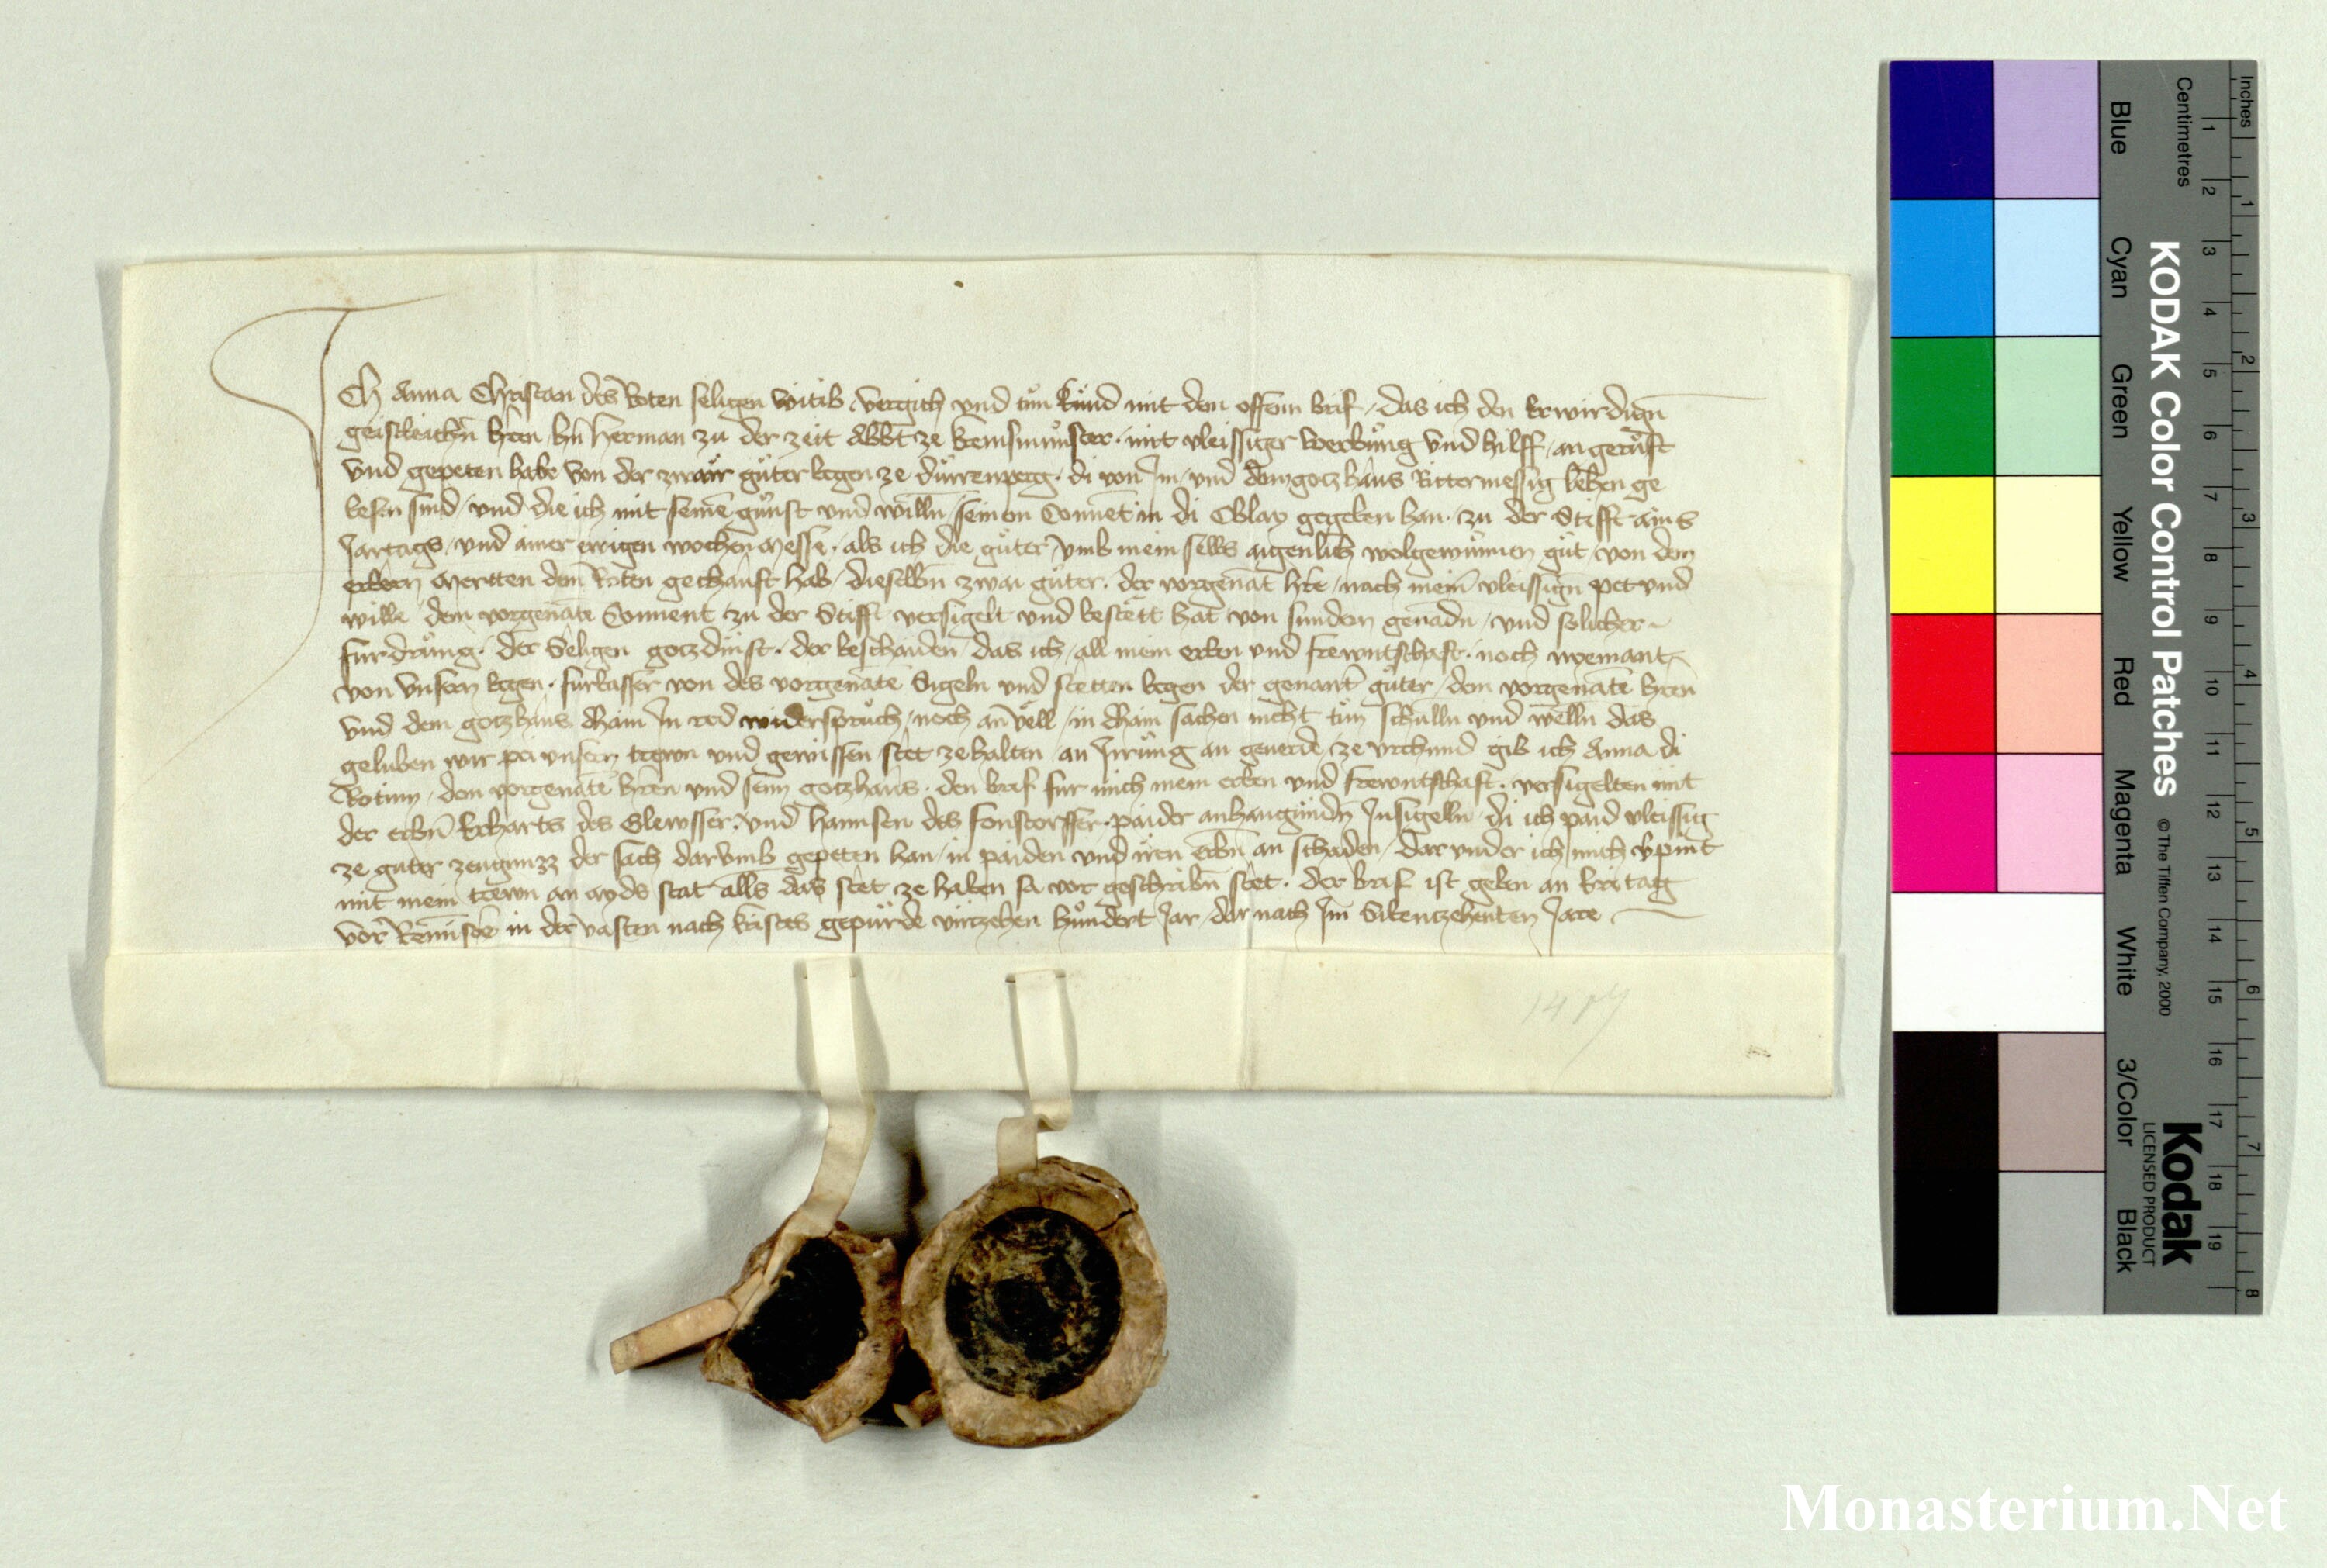 Ich Anna Christan des Roten seligen witib vergich und tun kund mit dem offenn brif, das ich den Erwirdign
geistleichn hren hn herman zu der zeit Abbt ze kremsmunster mit vleissiger werbung und hilff, angerufft
und gepeten habe von der zwair guter wegen ze durrenperg, di von Im und dem gotzhaus Rittermessig lehen ge
wesn sind, und die ich mit seine gunst und willn seinem Conuet in di Oblay gegeben han, zu der Stifft ains
Jartags, und ainer ewigen wochenmesse, als ich die guter umb mein selbs aigenlich wolgewunnen gut, von dem
erbern Mertten dem Roten gechauft hab, dieselbn zwai guter, der vorgenat hre, nach meim vleissign pet und
wille, dem vorgenate Conuent zu der Stifft versigelt und bestett hat, von sundern genadn, und solicher
furdrung, der Seligen gotzdinst, der beschaiden, das ich, all mein erben und frewntschaft, noch niemant
von unsern wegen, furbasser von des vorgenate Sigeln und stetten wegen der genant guter, dem vorgenate hren
und dem gotzhaus chain In red widerspruch, noch anvell, in chain sachen nicht tun schulln und welln das
geluben wir pei unsern trewn und gewissen stet ze halten, an Irrung an geuerde, ze urchund gib ich Anna di
Rotinn, dem vorgenate hren und seim gotzhaus, den brif fur mich mein erben und frewntschaft, versigelten mit
der erbn Ekharts des Glewsser, und hannsen des fonstorffer, paider anhangundn Insigeln, di ich paid vleissig
ze guter zeugnuzz der sach darumb gepeten han, in paiden und iren erbn an schaden, dar under ich mich verpint
mit mein trewn an ayds stat alls das stet ze haben sa vor geschribn stet. der brif ist geben an Eritag
vor Reminiscere in der vasten nach kristes gepurde virtzehen hundert Jar, dar nach Im Sibentzehenten Jare
1417
KODAK Color Control Patches
© The Tiffen Company, 2000
Kodak
LICENSED PRODUCT
Inches 1 2 3 4 5 6 7 8
Centimetres 1 2 3 4 5 6 7 8 9 10 11 12 13 14 15 16 17 18 19
Blue Cyan Green Yellow Red Magenta White 3/Color Black
Monasterium.Net